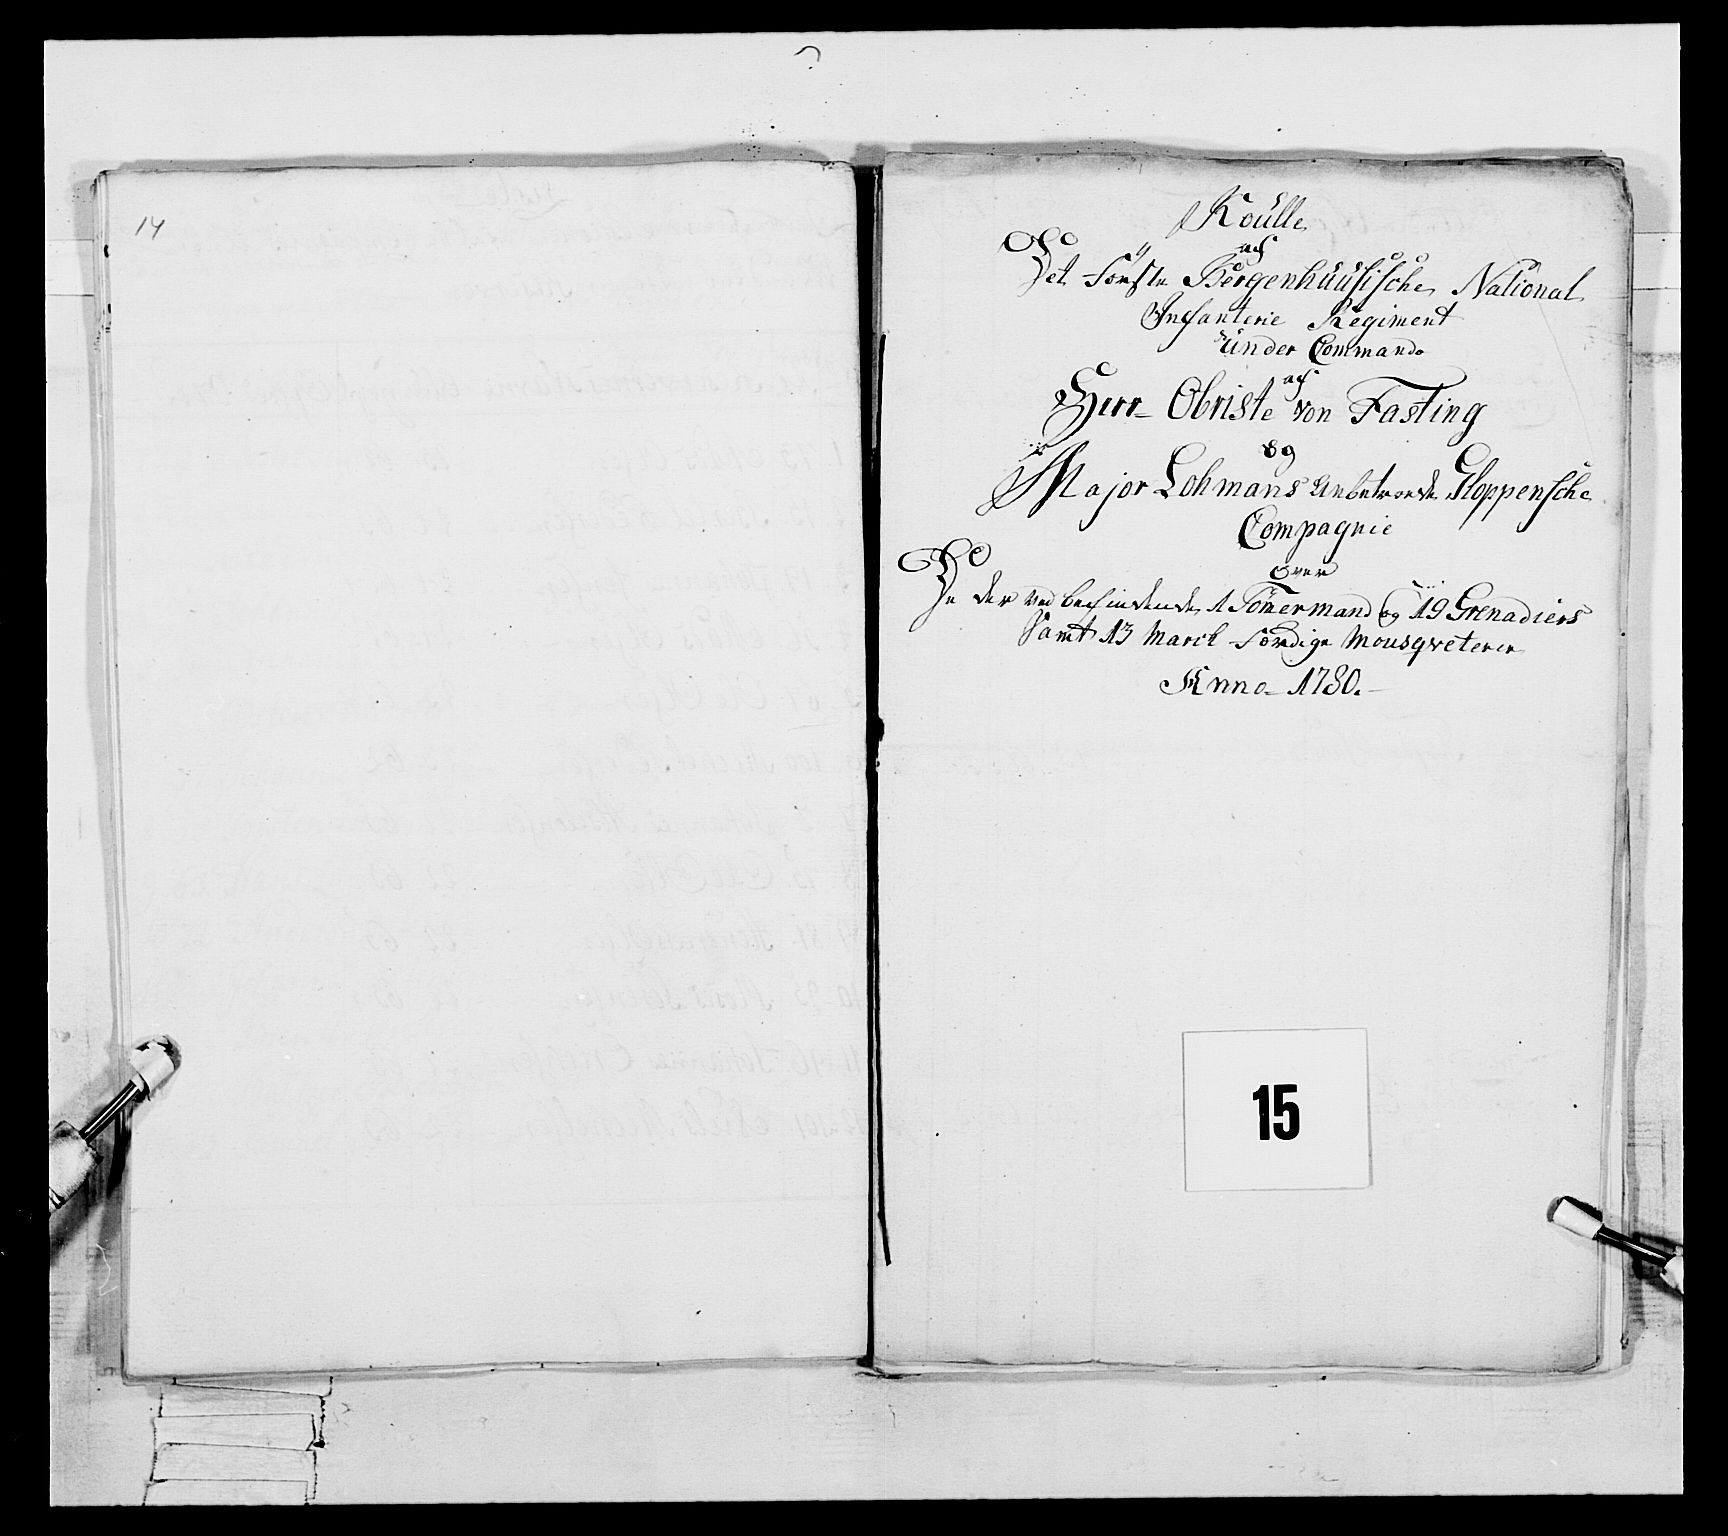 14
Roulle
af
Det Første Bergenhuusische National
Infanterie Regiment
under Commando
af
Herr Obriste von Fasting
og
Major Lohmans Anbetroede Gloppensche
Compagnie
over
De der ved befindende 1 Tömermand og 19 Grenadiers
samt 13 March færdige Mousqveterer
Anno 1780.
15